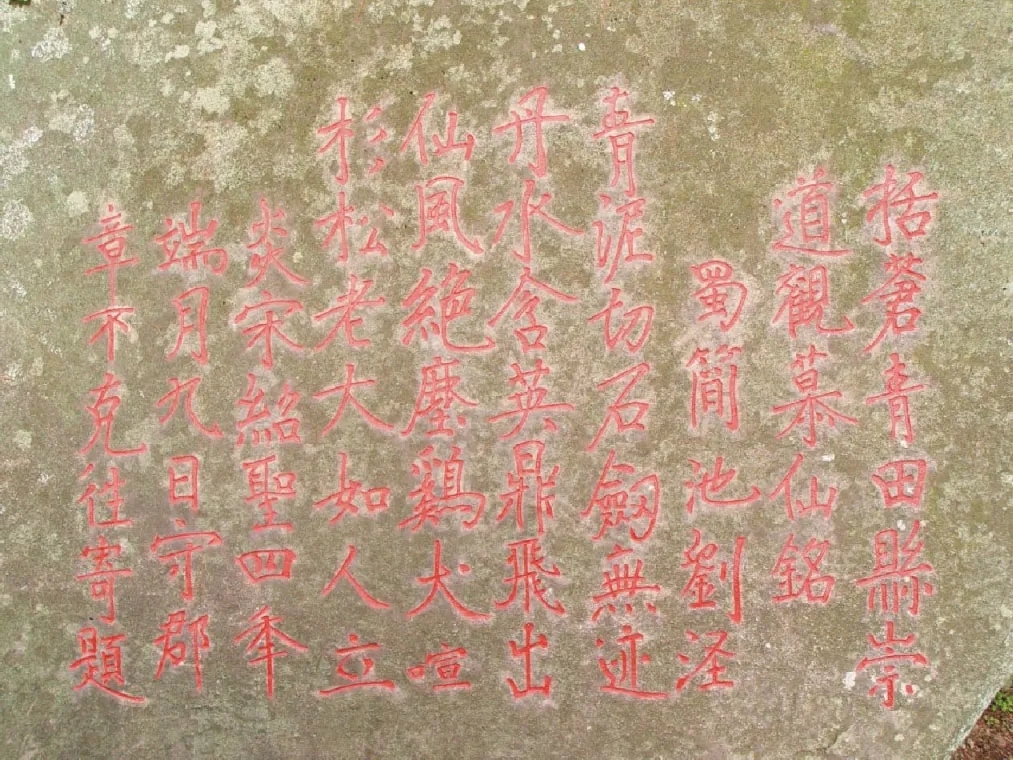 括蒼青田縣崇
道觀慕仙銘
蜀簡池劉涇
青泥切石劒無迹
丹水含英鼎飛出
仙風絶塵鷄犬喧
杉松老大如人立
炎宋紹聖四年
端月九日守郡
章不克往寄題